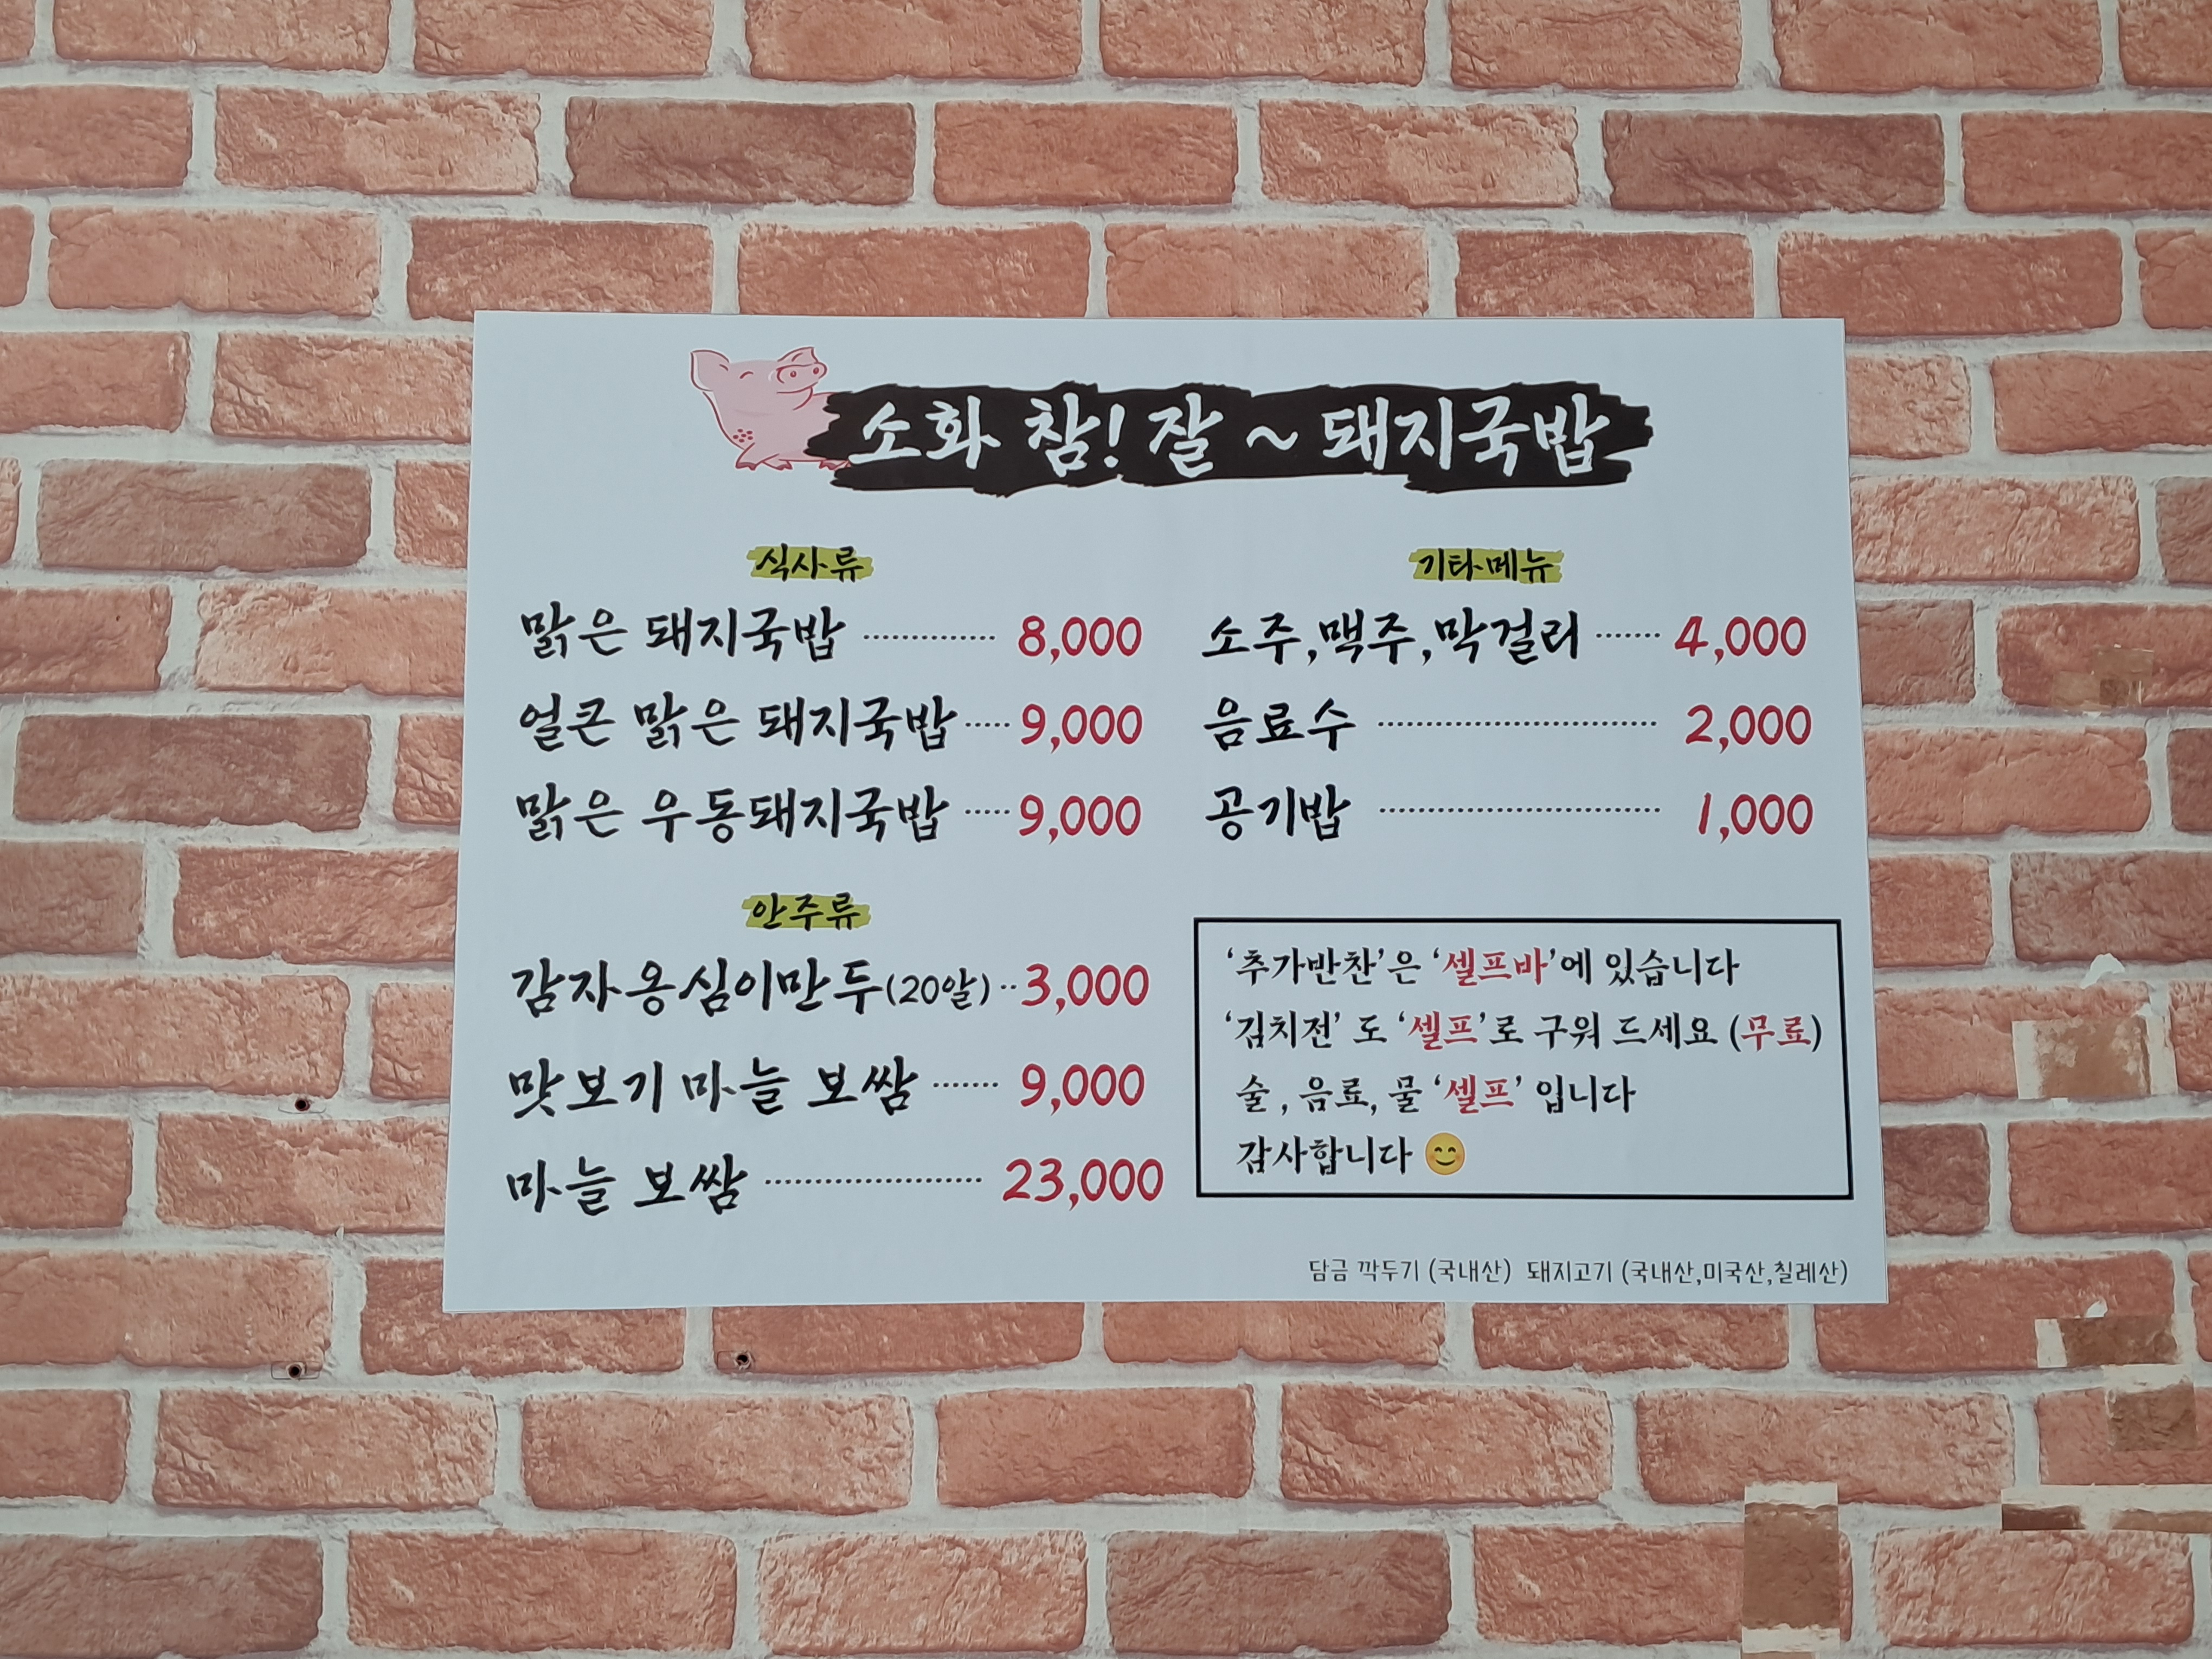 소화 참! 잘 ~ 돼지국밥
식사류
맑은 돼지국밥 ············ 8,000
얼큰 맑은 돼지국밥 ····· 9,000
맑은 우동돼지국밥 ····· 9,000
안주류
감자옹심이만두(20알) ·· 3,000
맛보기 마늘 보쌈 ······· 9,000
마늘 보쌈 ···················· 23,000
기타메뉴
소주,맥주,막걸리 ······· 4,000
음료수 ···························· 2,000
공기밥 ···························· 1,000
‘추가반찬’은 ‘셀프바’에 있습니다
‘김치전’ 도 ‘셀프’로 구워 드세요 (무료)
술 , 음료, 물 ‘셀프’ 입니다
감사합니다 😊
담금 깍두기 (국내산) 돼지고기 (국내산,미국산,칠레산)